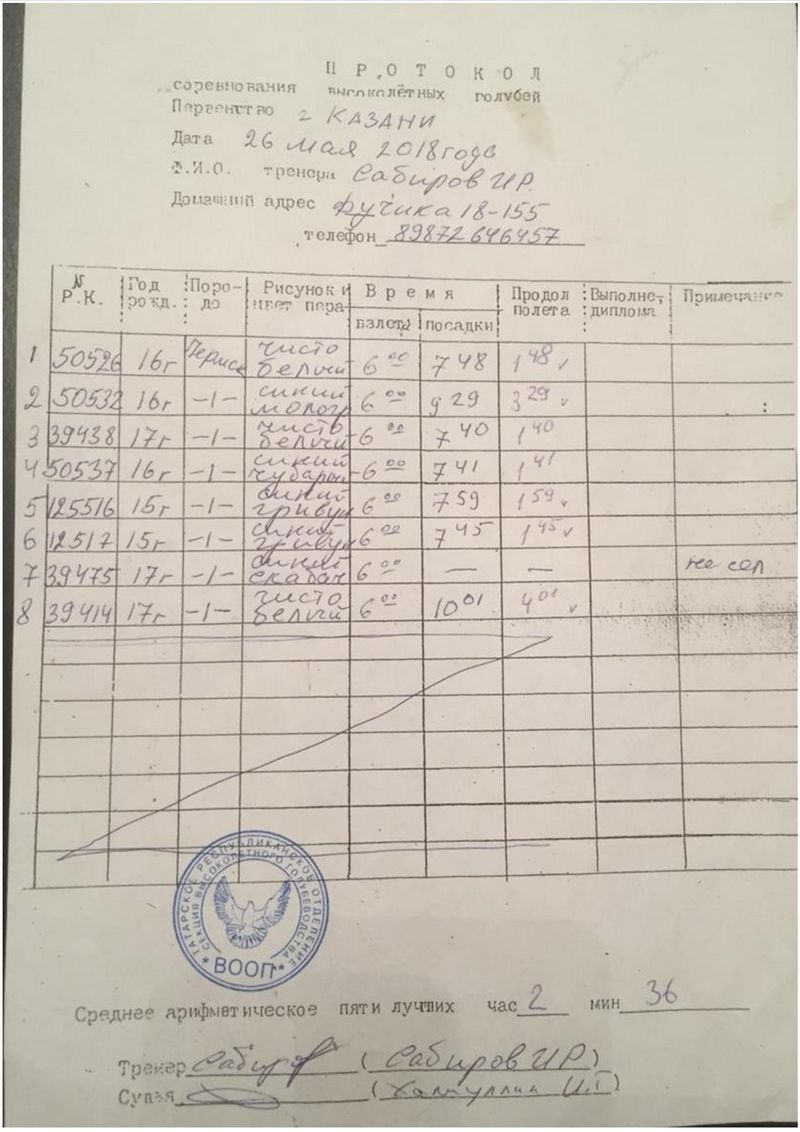 П Р О Т О К О Л
соревнования высоколётных голубей
Первенство г КАЗАНИ
Дата 26 мая 2018 года
Ф.И.О. тренера Сабиров И.Р.
Домашний адрес Фучика 18-155
телефон 89872646457
№ Р.К. Год рожд. Поро-до Рисунок и цвет пера Время взлета посадки Продол полета Выполне, диплома Примечание
1 50526 16г Пермск чисто белый 6 00 7 48 1 48 v
2 50532 16г -1- синий 6 00 9 29 3 29 v :
3 39438 17г -1- чисто белый 6 00 7 40 1 40
4 50537 16г -1- синий чубарый 6 00 7 41 1 41
5 125516 15г -1- синий гривун 6 00 7 59 1 59 v
6 12517 15г -1- синий гривун 6 00 7 45 1 45 v
7 39475 17г -1- синий 6 00 — — не сел
8 39414 17г -1- чисто белый 6 00 10 01 4 01 v
* ТАТАРСКОЕ РЕСПУБЛИКАНСКОЕ ОТДЕЛЕНИЕ *
СЕКЦИЯ ВЫСОКОЛЕТНОГО ГОЛУБЕВОДСТВА
ВООП
Среднее арифметическое пяти лучших час 2 мин 36
Тренер Сабиров (Сабиров И.Р.)
Судья (